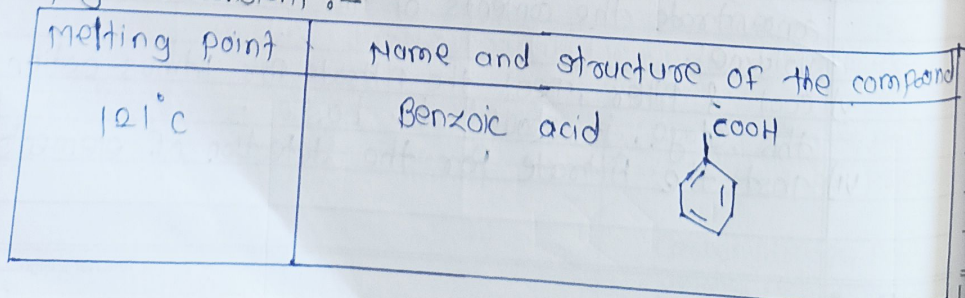 Melting point
Name and structure of the compound
121°C
Benzoic acid
COOH